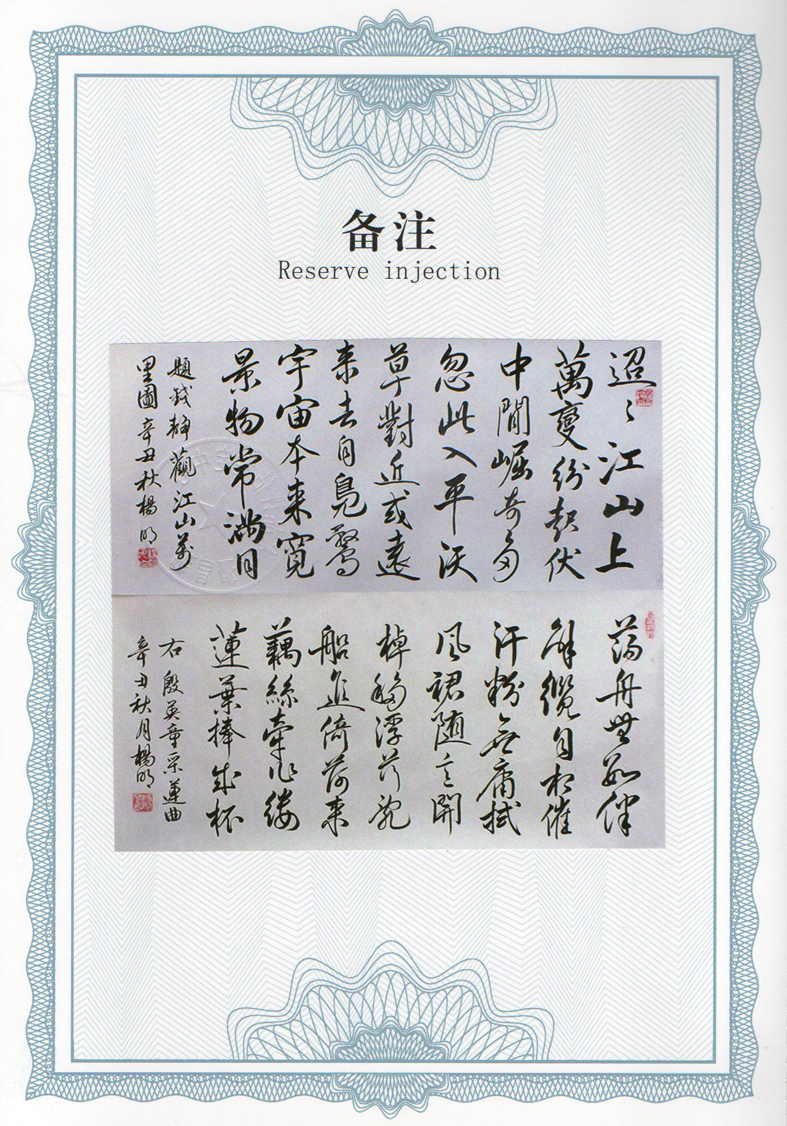 备注
Reserve injection
迢〻江山上
萬變紛起伏
中間崛奇多
忽此入平沃
草對近或遠
来去自鳧鶩
宇宙本来寬
景物常满目
題錢 觀江山萬
里圖辛丑秋楊明
蕩舟無數伴
解纜自相催
汗粉無庸拭
風裙随意開
棹移浮荇亂
船進倚荷来
藕絲牽作縷
蓮葉捧成杯
右殷英童采蓮曲
辛丑秋月楊明